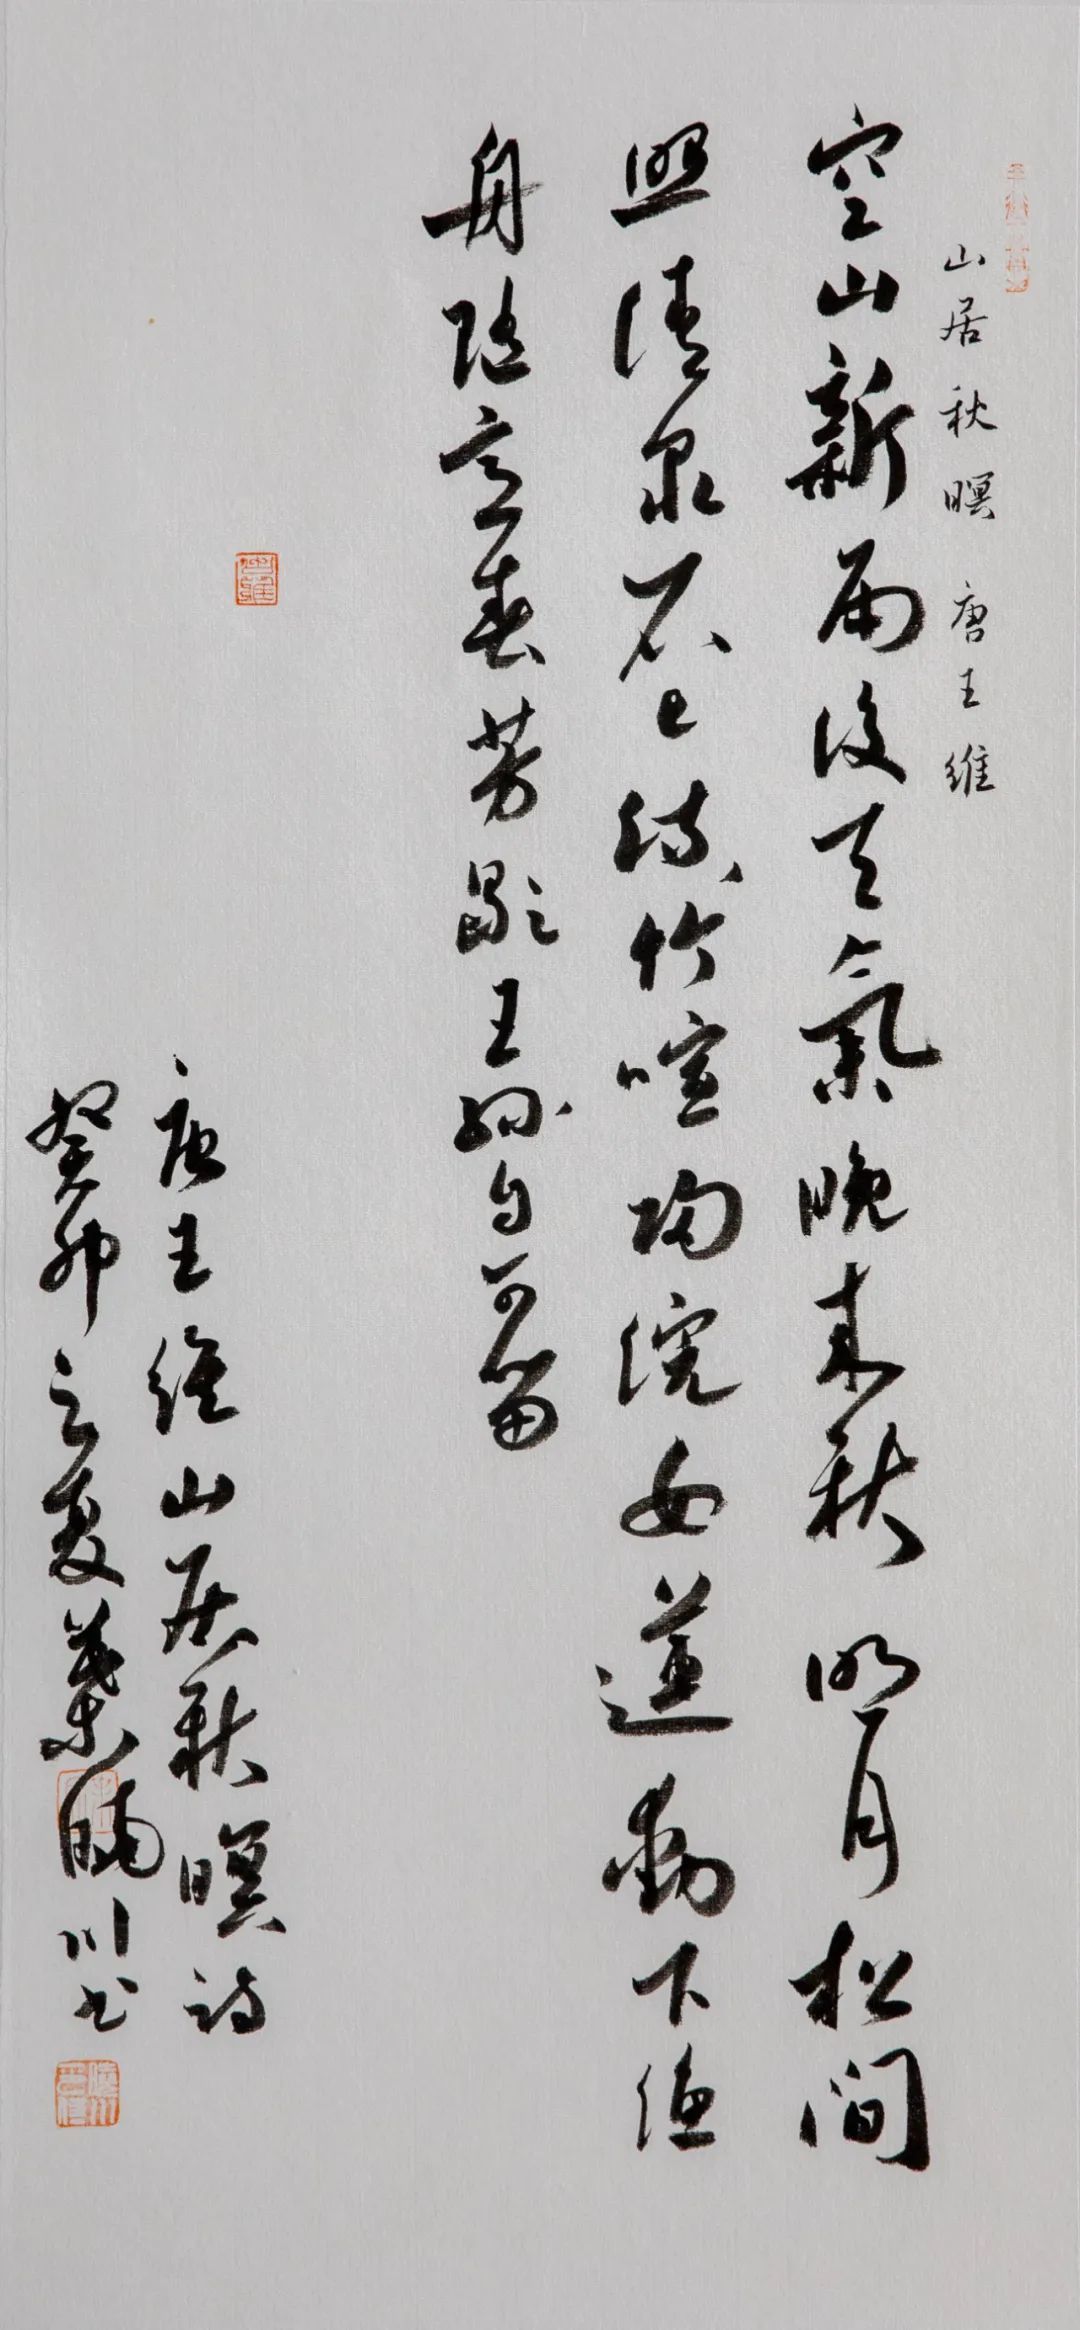 山居秋暝 唐王維
空山新雨後天氣晚來秋明月松間
照清泉石上流竹喧歸浣女蓮動下漁
舟隨意春芳歇王孫自可留
唐王維山居秋暝詩
癸卯之夏葉曉川书